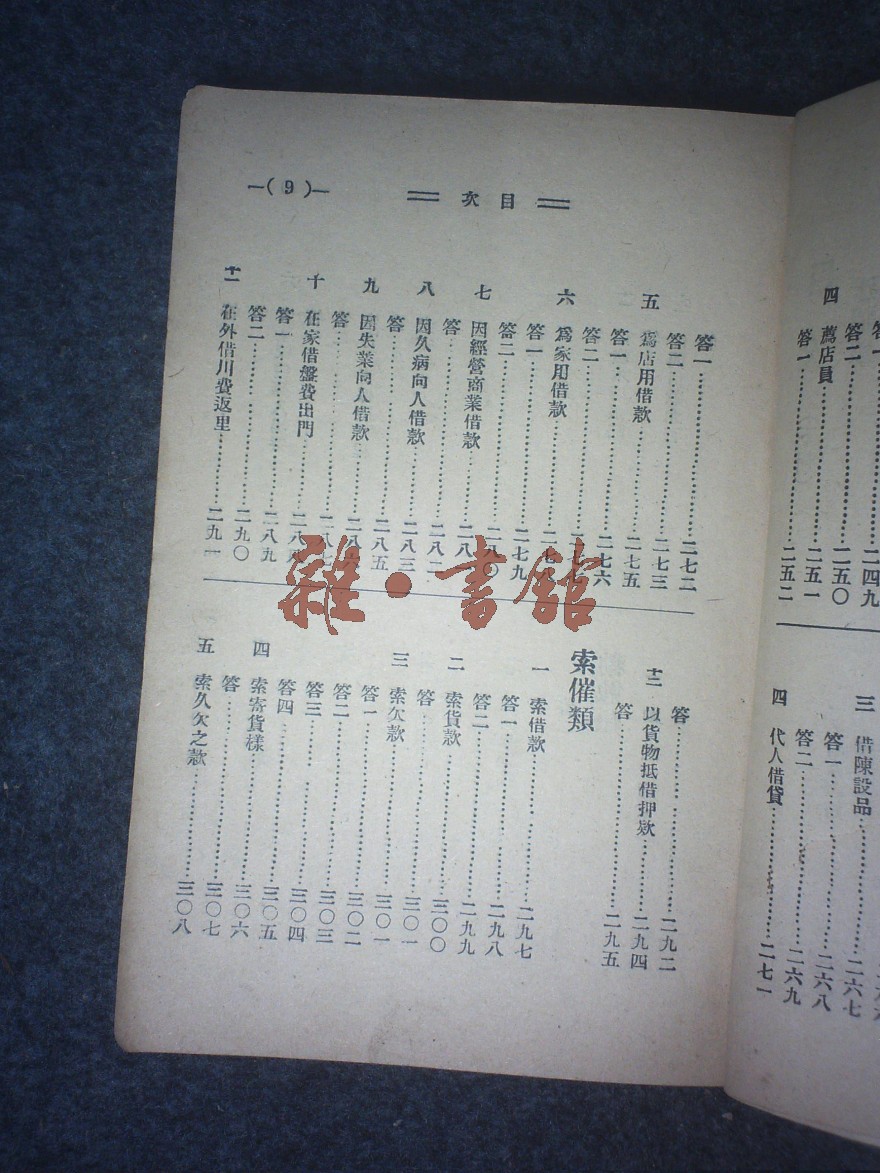 答一……二四九
答二……二五〇
四 薦店員……二五一
答一……二五二
三 借陳設品……二六七
答一……二六八
答二……二六九
四 代人借貸……二七一
目次
—(9)—
答一……二七二
答二……二七三
五 爲店用借款……二七五
答一……二七六
答二……二七七
六 爲家用借款……二七八
答一……二七九
答二……二八〇
七 因經營商業借款……二八一
答……二八二
八 因久病向人借款……二八三
答……二八五
九 因失業向人借款……二八六
答……二八七
十 在家借盤費出門……二八八
答一……二八九
答二……二九〇
十一 在外借川費返里……二九一
答……二九二
十二 以貨物抵借押款……二九四
答……二九五
索催類
一 索借款……二九七
答一……二九八
答二……二九九
二 索貨款……三〇〇
答……三〇一
三 索欠款……三〇一
答一……三〇二
答二……三〇三
答三……三〇四
答四……三〇五
四 索寄貨樣……三〇六
答……三〇七
五 索久欠之款……三〇八
雜·書館